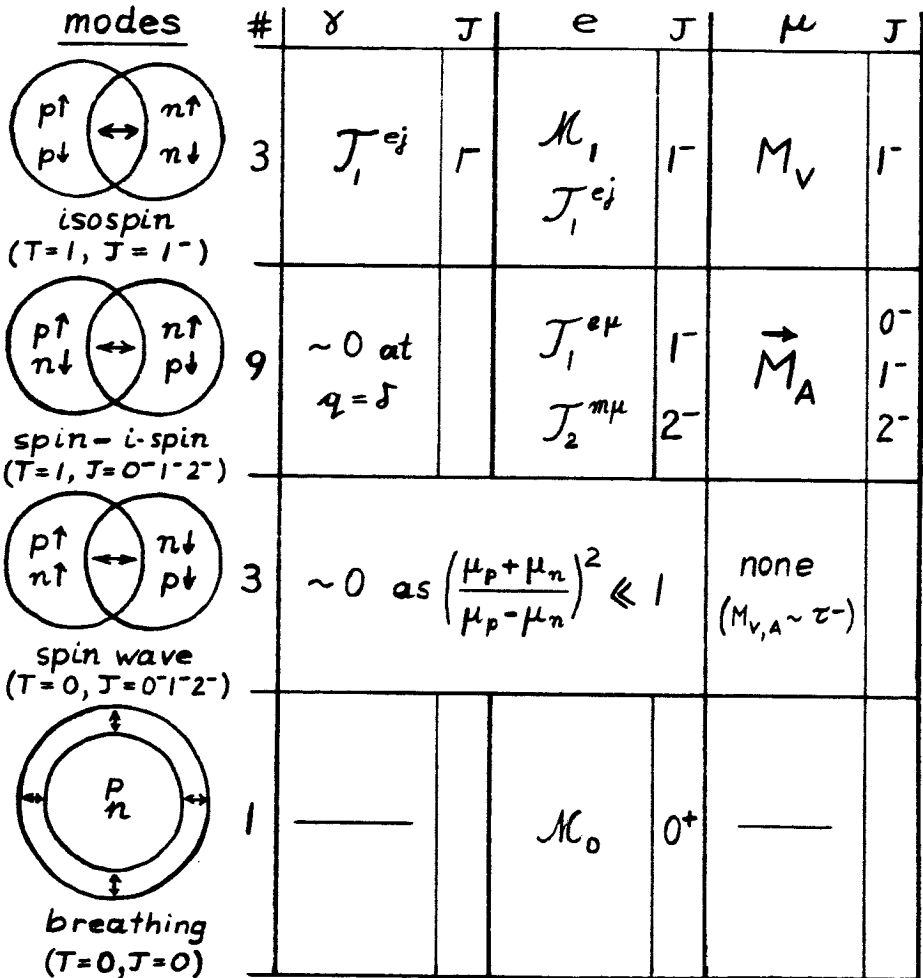 modes # γ J e J μ J
p↑ n↑
p↓ n↓
isospin
(T=1, J=1⁻)
3 𝒯₁ᵉʲ 1⁻ ℳ₁ 1⁻ M_V 1⁻
𝒯₁ᵉʲ
p↑ n↑
n↓ p↓
spin-i-spin
(T=1, J=0⁻1⁻2⁻)
9 ~0 at 𝒯₁ᵉᵘ 1⁻ M⃗_A 0⁻
q=δ 𝒯₂ᵐᵘ 2⁻ 1⁻
2⁻
p↑ n↓
n↑ p↓
spin wave
(T=0, J=0⁻1⁻2⁻)
3 ~0 as (μₚ+μₙ / μₚ-μₙ)² ≪ 1 none
(M_V,A ~ τ⁻)
p
n
breathing
(T=0, J=0)
1 — ℳ₀ 0⁺ —